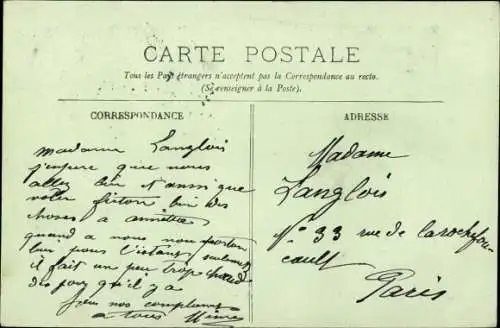 CARTE POSTALE
Tous les Pays étrangers n'acceptent pas la Correspondance au recto.
(Se renseigner à la Poste).
CORRESPONDANCE
madame Langlois
j'espere que vous
allez bien et aussi que
votre fiston bien des
choses a
quand a nous nous portons
bien pour l'instant seulement
il fait un peu trop chaud
des pays qu'il y a
nos compliments
a tous
ADRESSE
Madame
Langlois
N° 33 rue de larochefou
cault
Paris